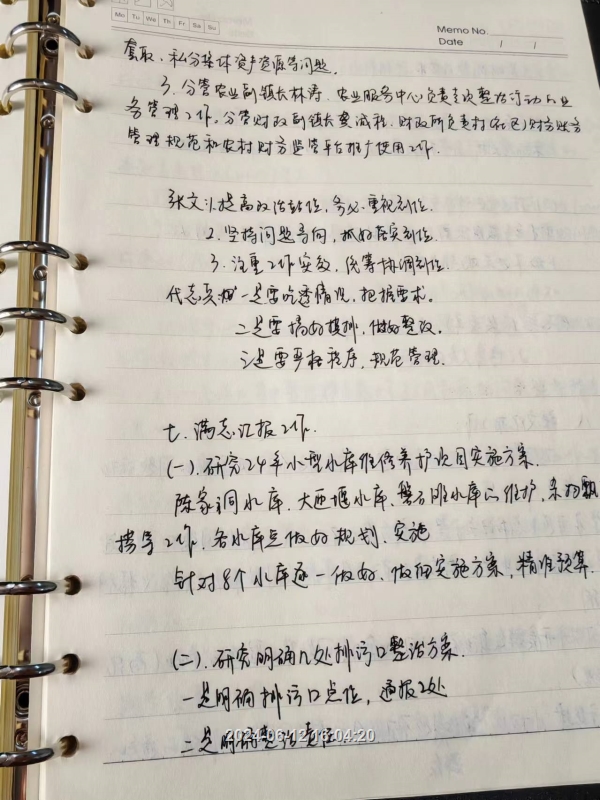 Mo Tu We Th Fr Sa Su
Memo No.
Date / /
套取、私分集体资产资源等问题.
3. 分管农业副镇长林涛、农业服务中心负责专项整治行动的业
务管理工作,分管财政副镇长樊诚程、财政所负责村(社区)财务账务
管理规范和农村财务监管平台推广使用工作.
张文:1.提高政治站位,务必重视到位.
2.坚持问题导向,抓好落实到位.
3.注重工作实效,统筹协调到位.
代志 一是要吃透情况,把握要求.
二是要搞好摸排,做好整改.
三是要严格程序,规范管理.
七、满志汇报工作.
(一).研究24年小型水库维修养护项目实施方案.
陈家洞水库、大 堰水库、磐石 水库的维护,杂物飘
捞等工作,各水库点做好规划、实施
针对8个水库逐一做好、做细实施方案,精准预算.
(二).研究明确几处排污口整治方案.
一是明确排污口点位,通报2处
二是明确整治责任.
2024-06-12 16:04:20